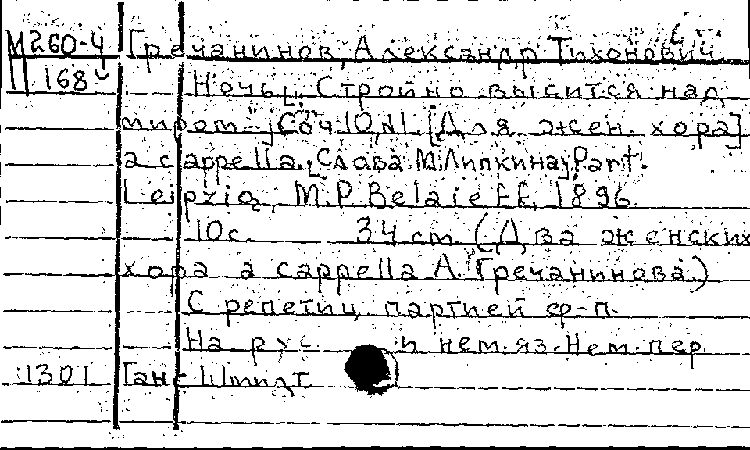 М260-4 Гречанинов, Александр Тихонович
11168 Ночь. [Стройно высится над
миром...] Соч. 10, N1 [Для жен. хора]
a cappella. [Слова М. Липкина]. Part.
Leipzig, M.P. Belaieff, 1896.
10с. 34 cm. (Два женских
хора a cappella А. Гречанинова.)
С репетиц. партией ф-п.
На рус. и нем. яз. Нем. пер.
1301 Ганс Шмидт